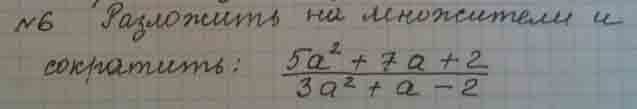 №6 Разложить на множители и
сократить: (5a² + 7a + 2)/(3a² + a - 2)